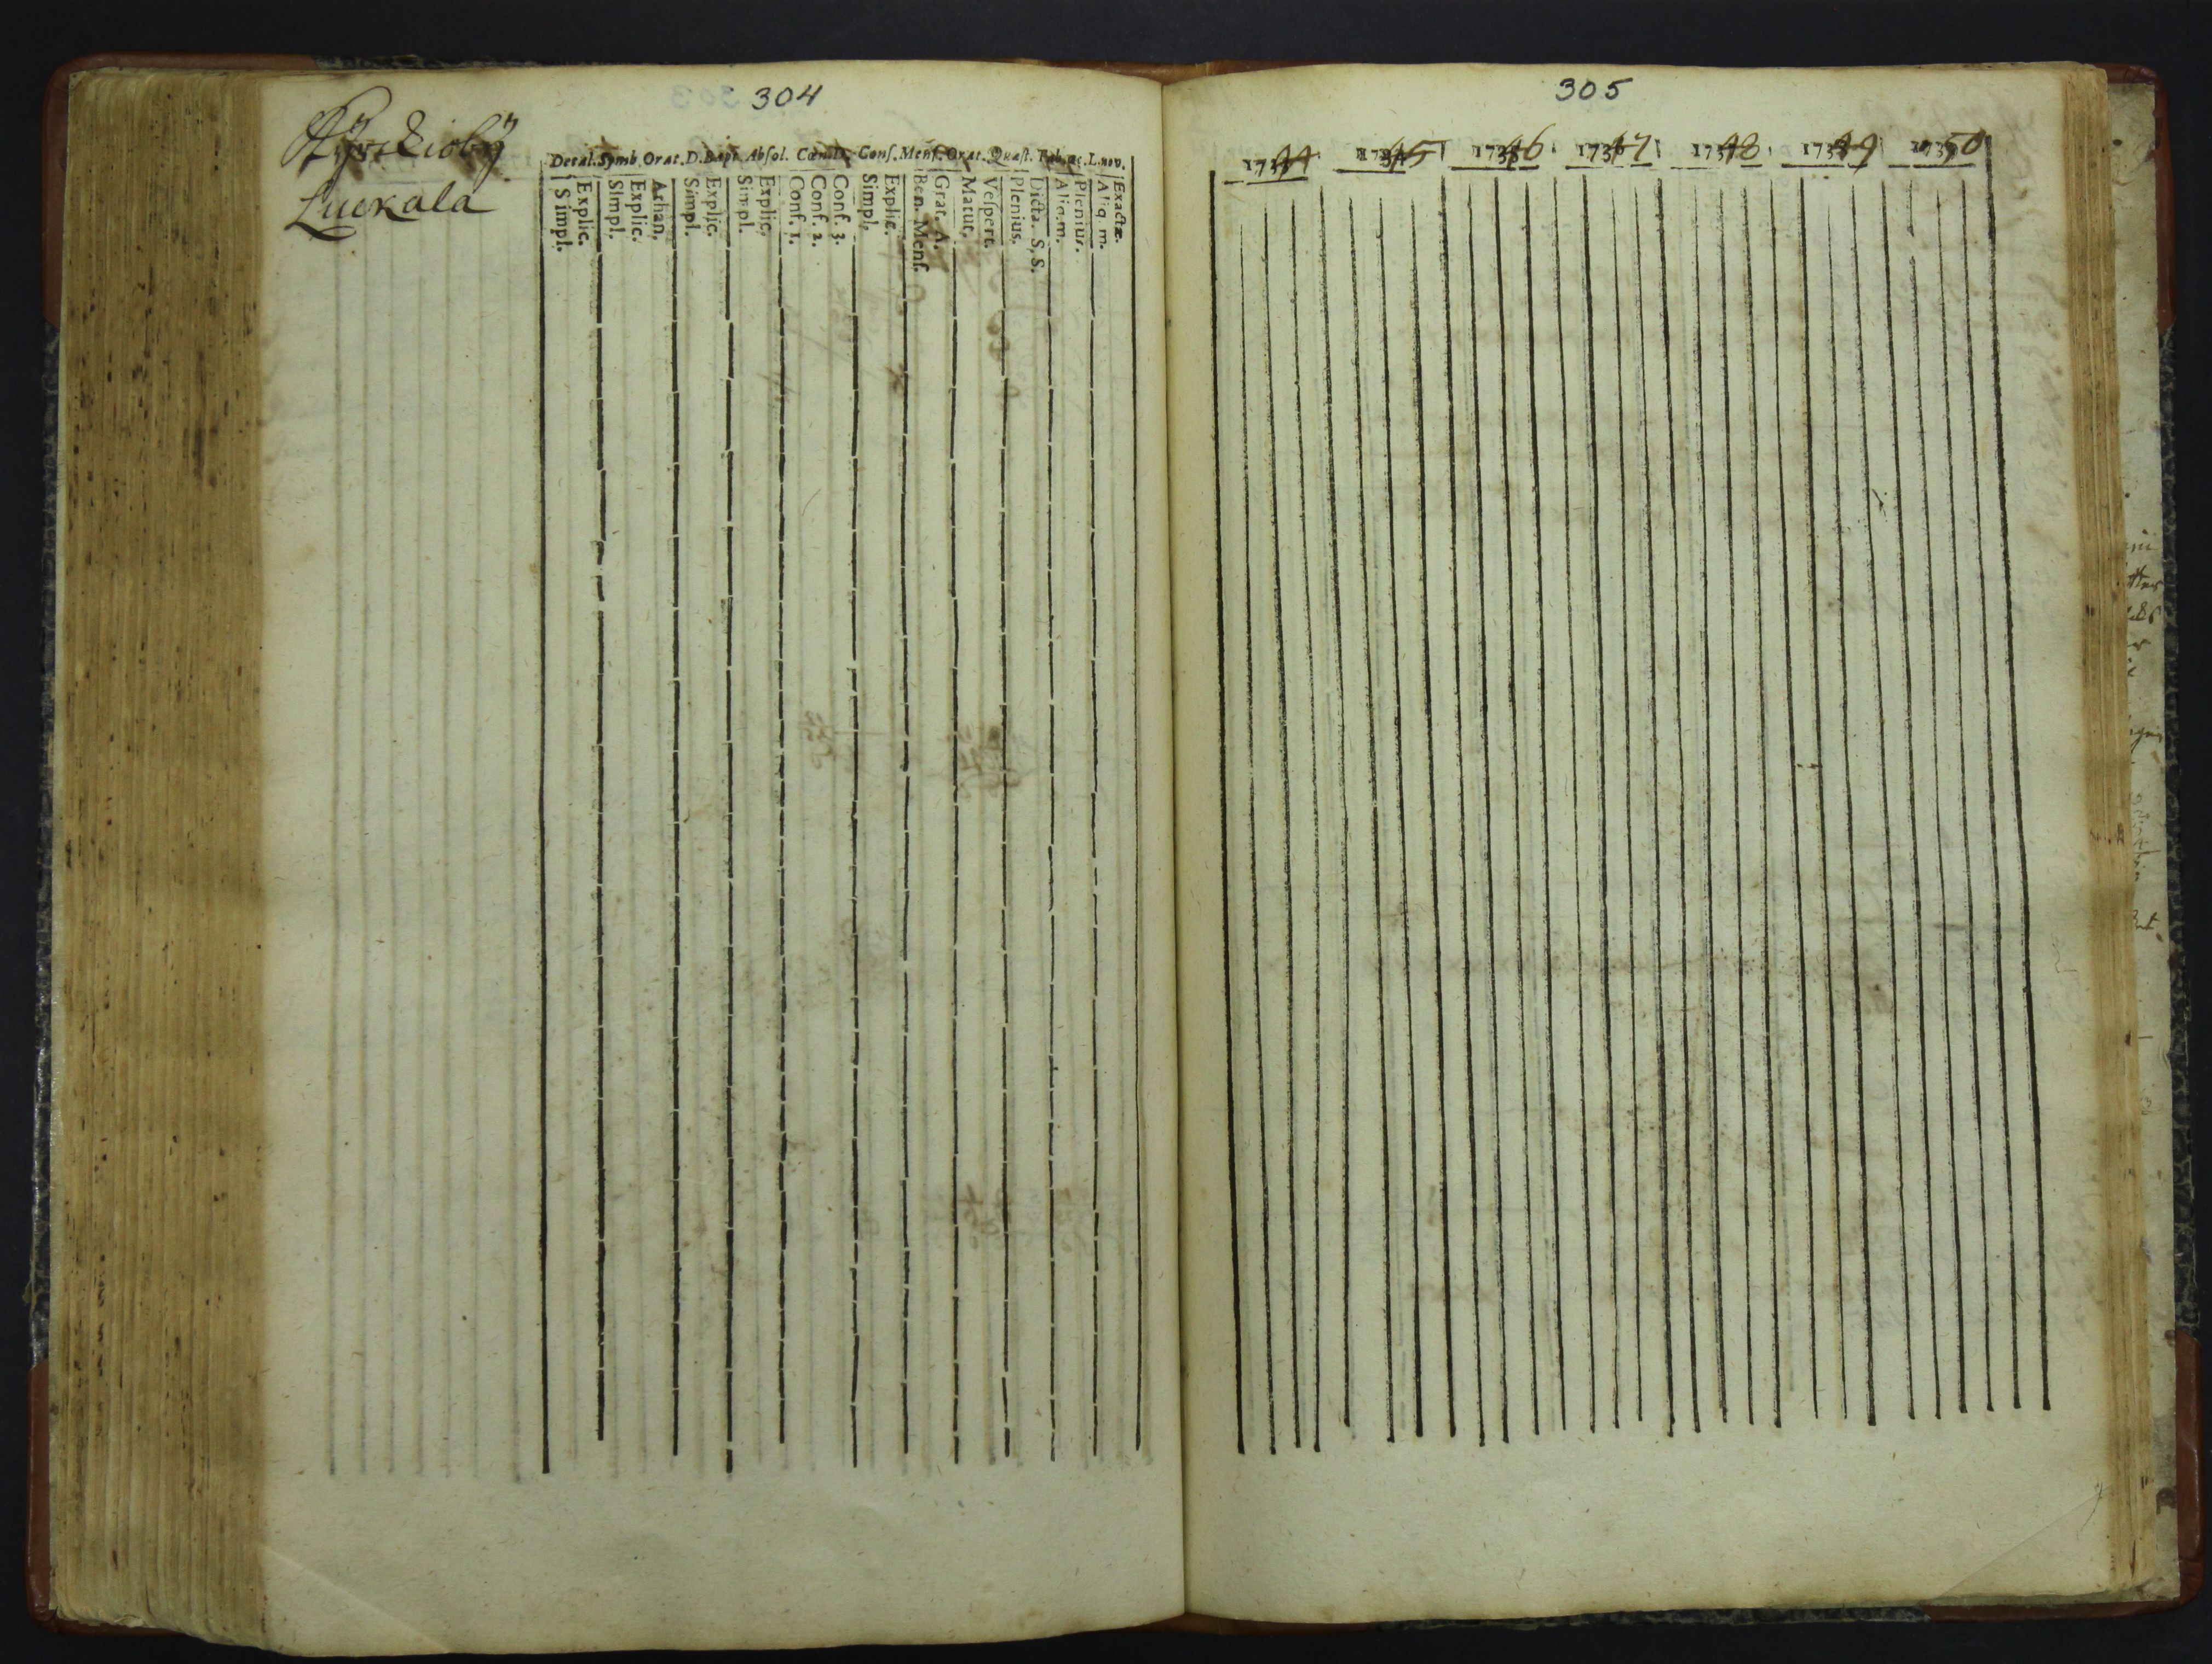 304
Kyrckioby
Luckala
Decal. Symb. Orat. D. Bapt. Absol. Cœn. D. Conf. Menſ. Orat. Quæſt. Tab. œc. L. nov.
Simpl.
Explic.
Simpl.
Explic.
Athan.
Simpl.
Explic.
Simpl.
Explic.
Conf. 1.
Conf. 2.
Conf. 3.
Simpl.
Explic.
Ben. Menſ.
Grat. A.
Matut.
Veſpert.
Plenius.
Dicta. S. S.
Aliq. m.
Plenius.
Aliq. m.
Exactæ.
305
1744 1745 1746 1747 1748 1749 1750